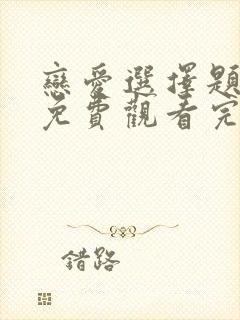 戀愛選擇題
免費觀看完
錯路